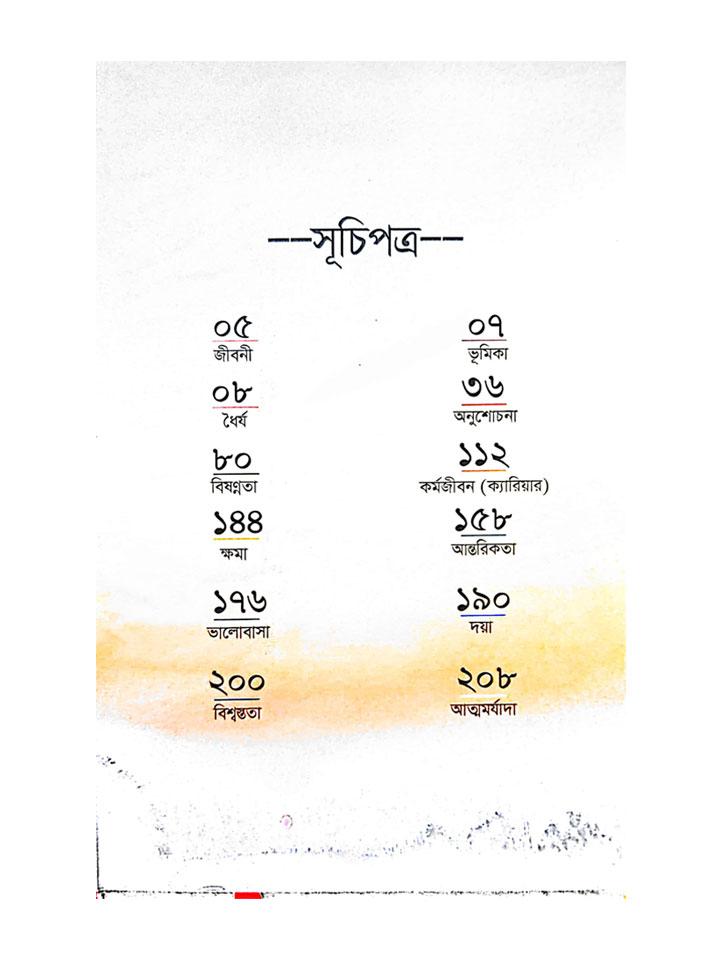 --সূচিপত্র--
০৫ ০৭
জীবনী ভূমিকা
০৮ ৩৬
ধৈর্য অনুশোচনা
৮০ ১১২
বিষণ্ণতা কর্মজীবন (ক্যারিয়ার)
১৪৪ ১৫৮
ক্ষমা আন্তরিকতা
১৭৬ ১৯০
ভালোবাসা দয়া
২০০ ২০৮
বিশ্বস্ততা আত্মমর্যাদা